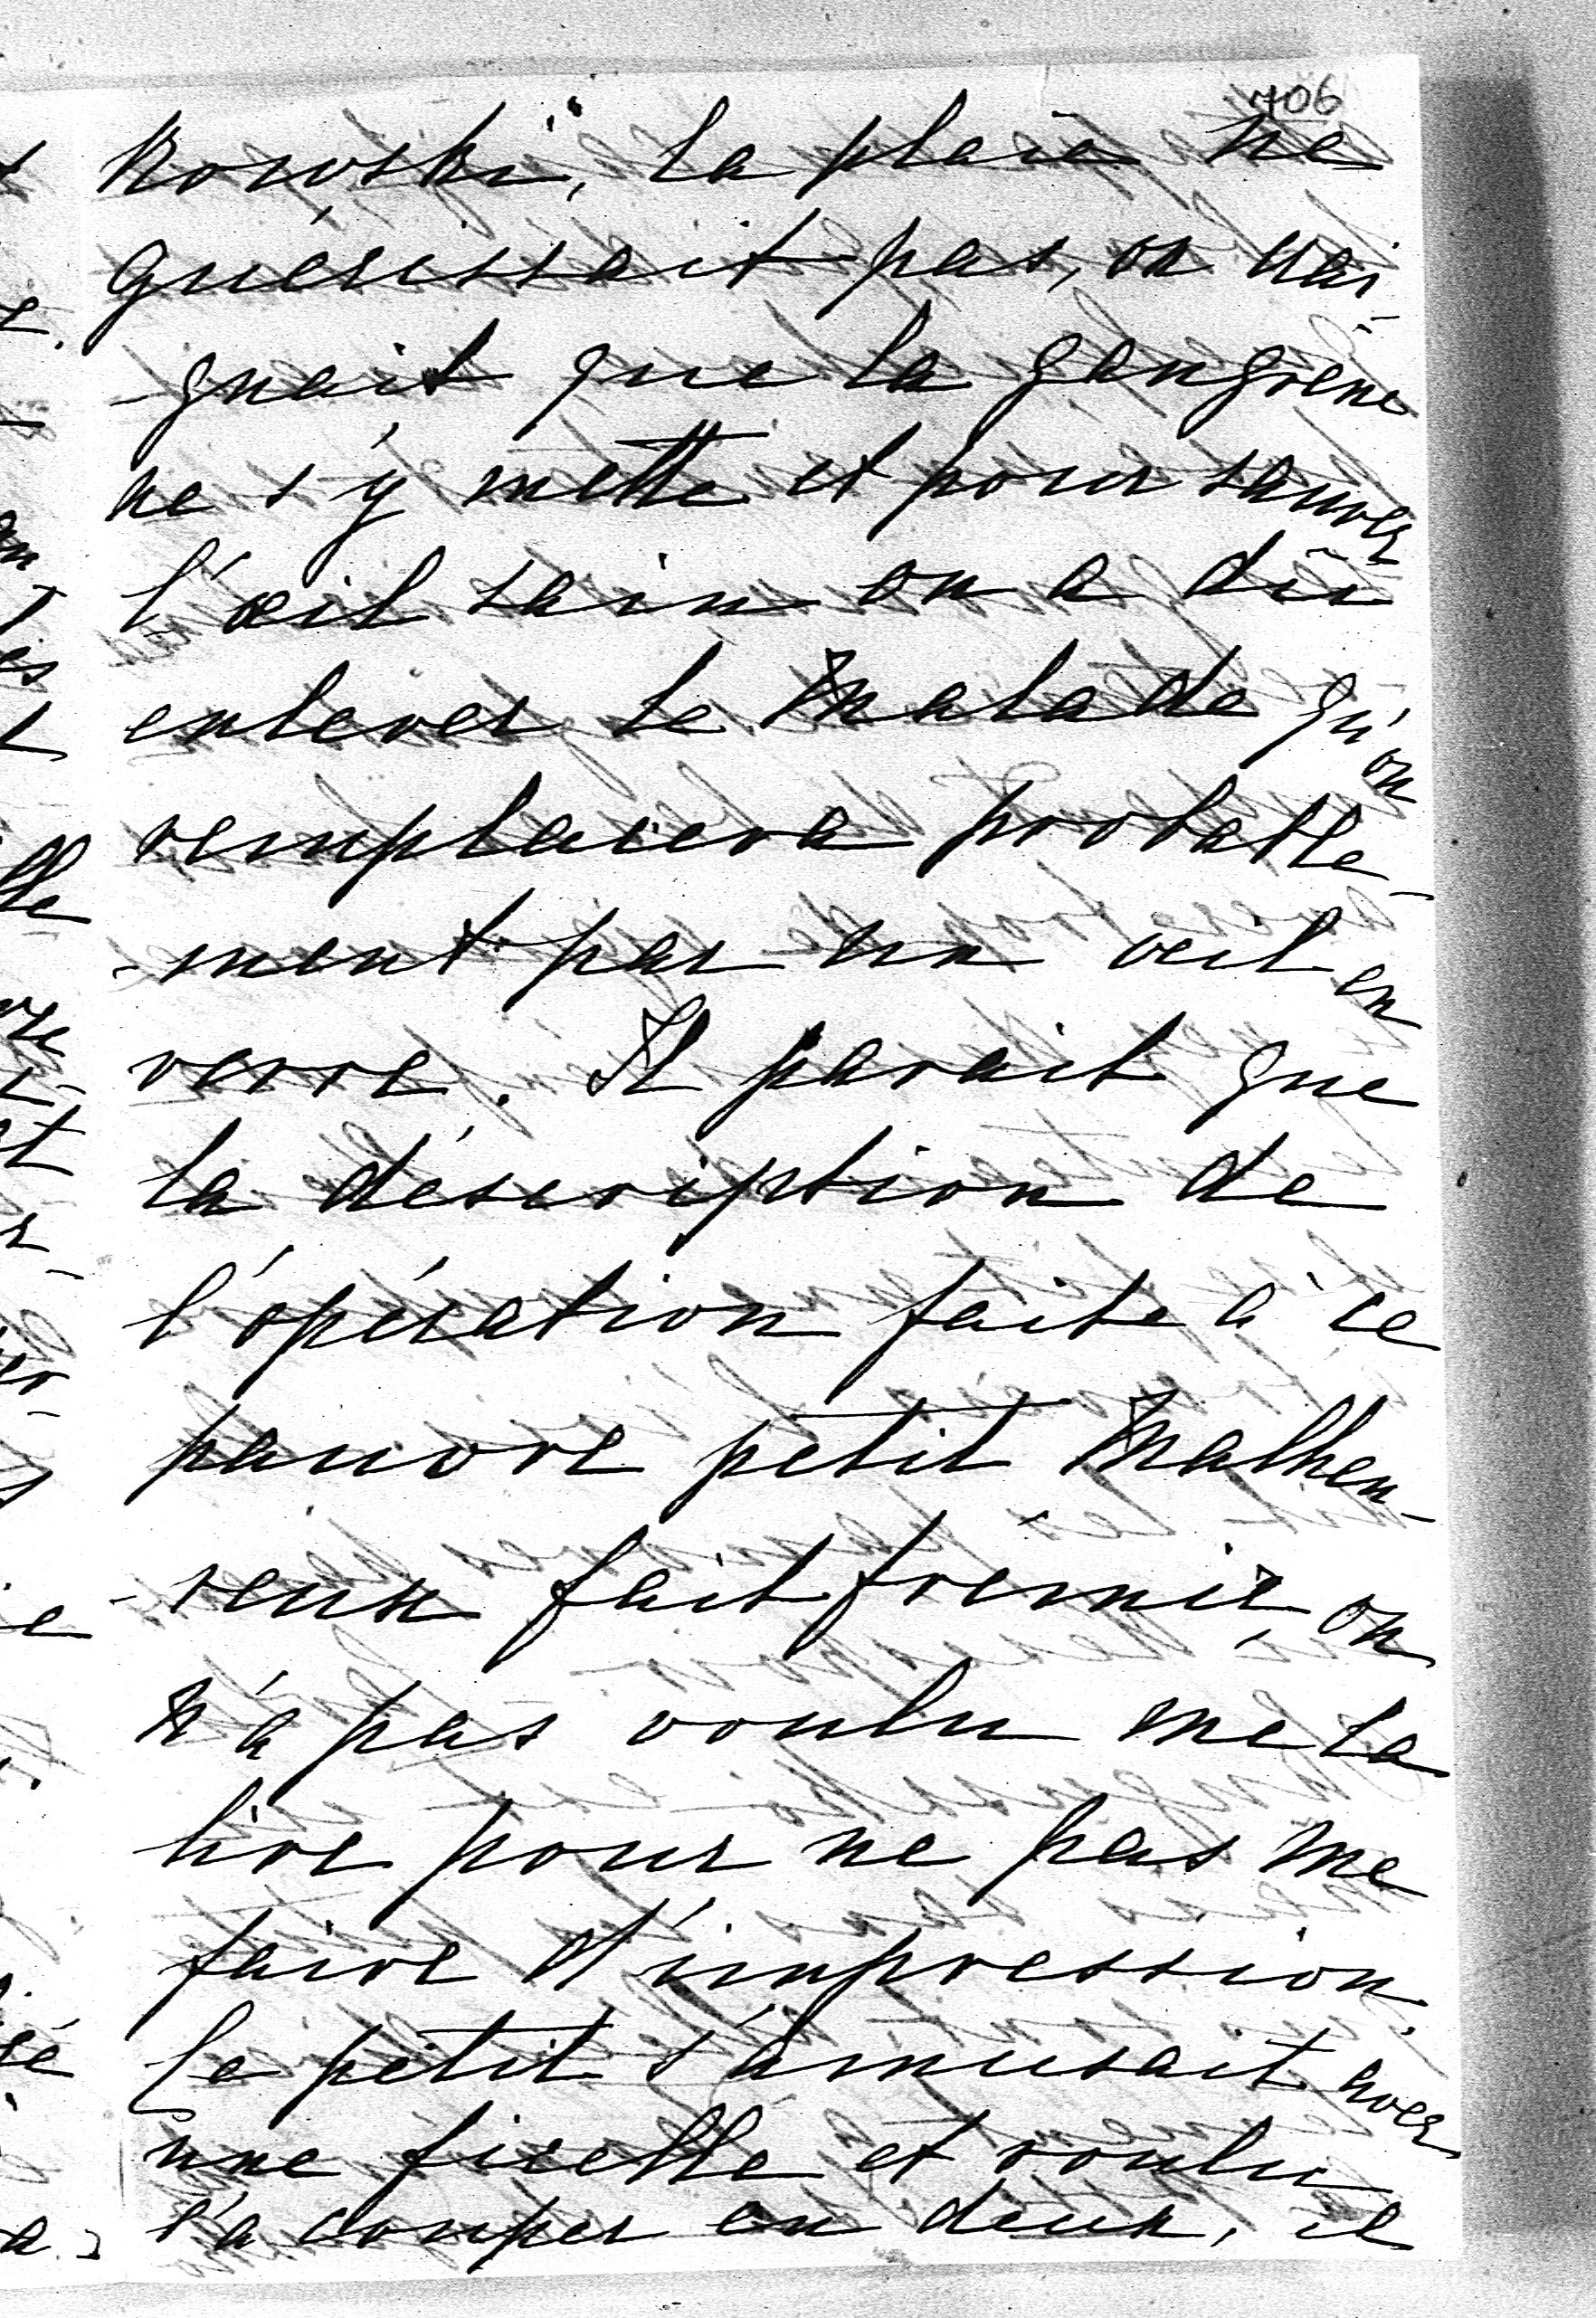 706
kowski, la plaie ne
guérissait pas, on crai-
-gnait que la gangrène
ne s'y mette et pour sauver
l'œil sain on a dû
enlever le malade qu'on
remplacera probable-
-ment par un œil en
verre. Il parait que
la déscription de
l'opération faite à ce
pauvre petit malheu-
-reux fait frémir, on
n'a pas voulu me la
lire pour ne pas me
faire d'impression.
Le petit s'amusait avec
une ficelle et voulu
l'a couper en deux, il